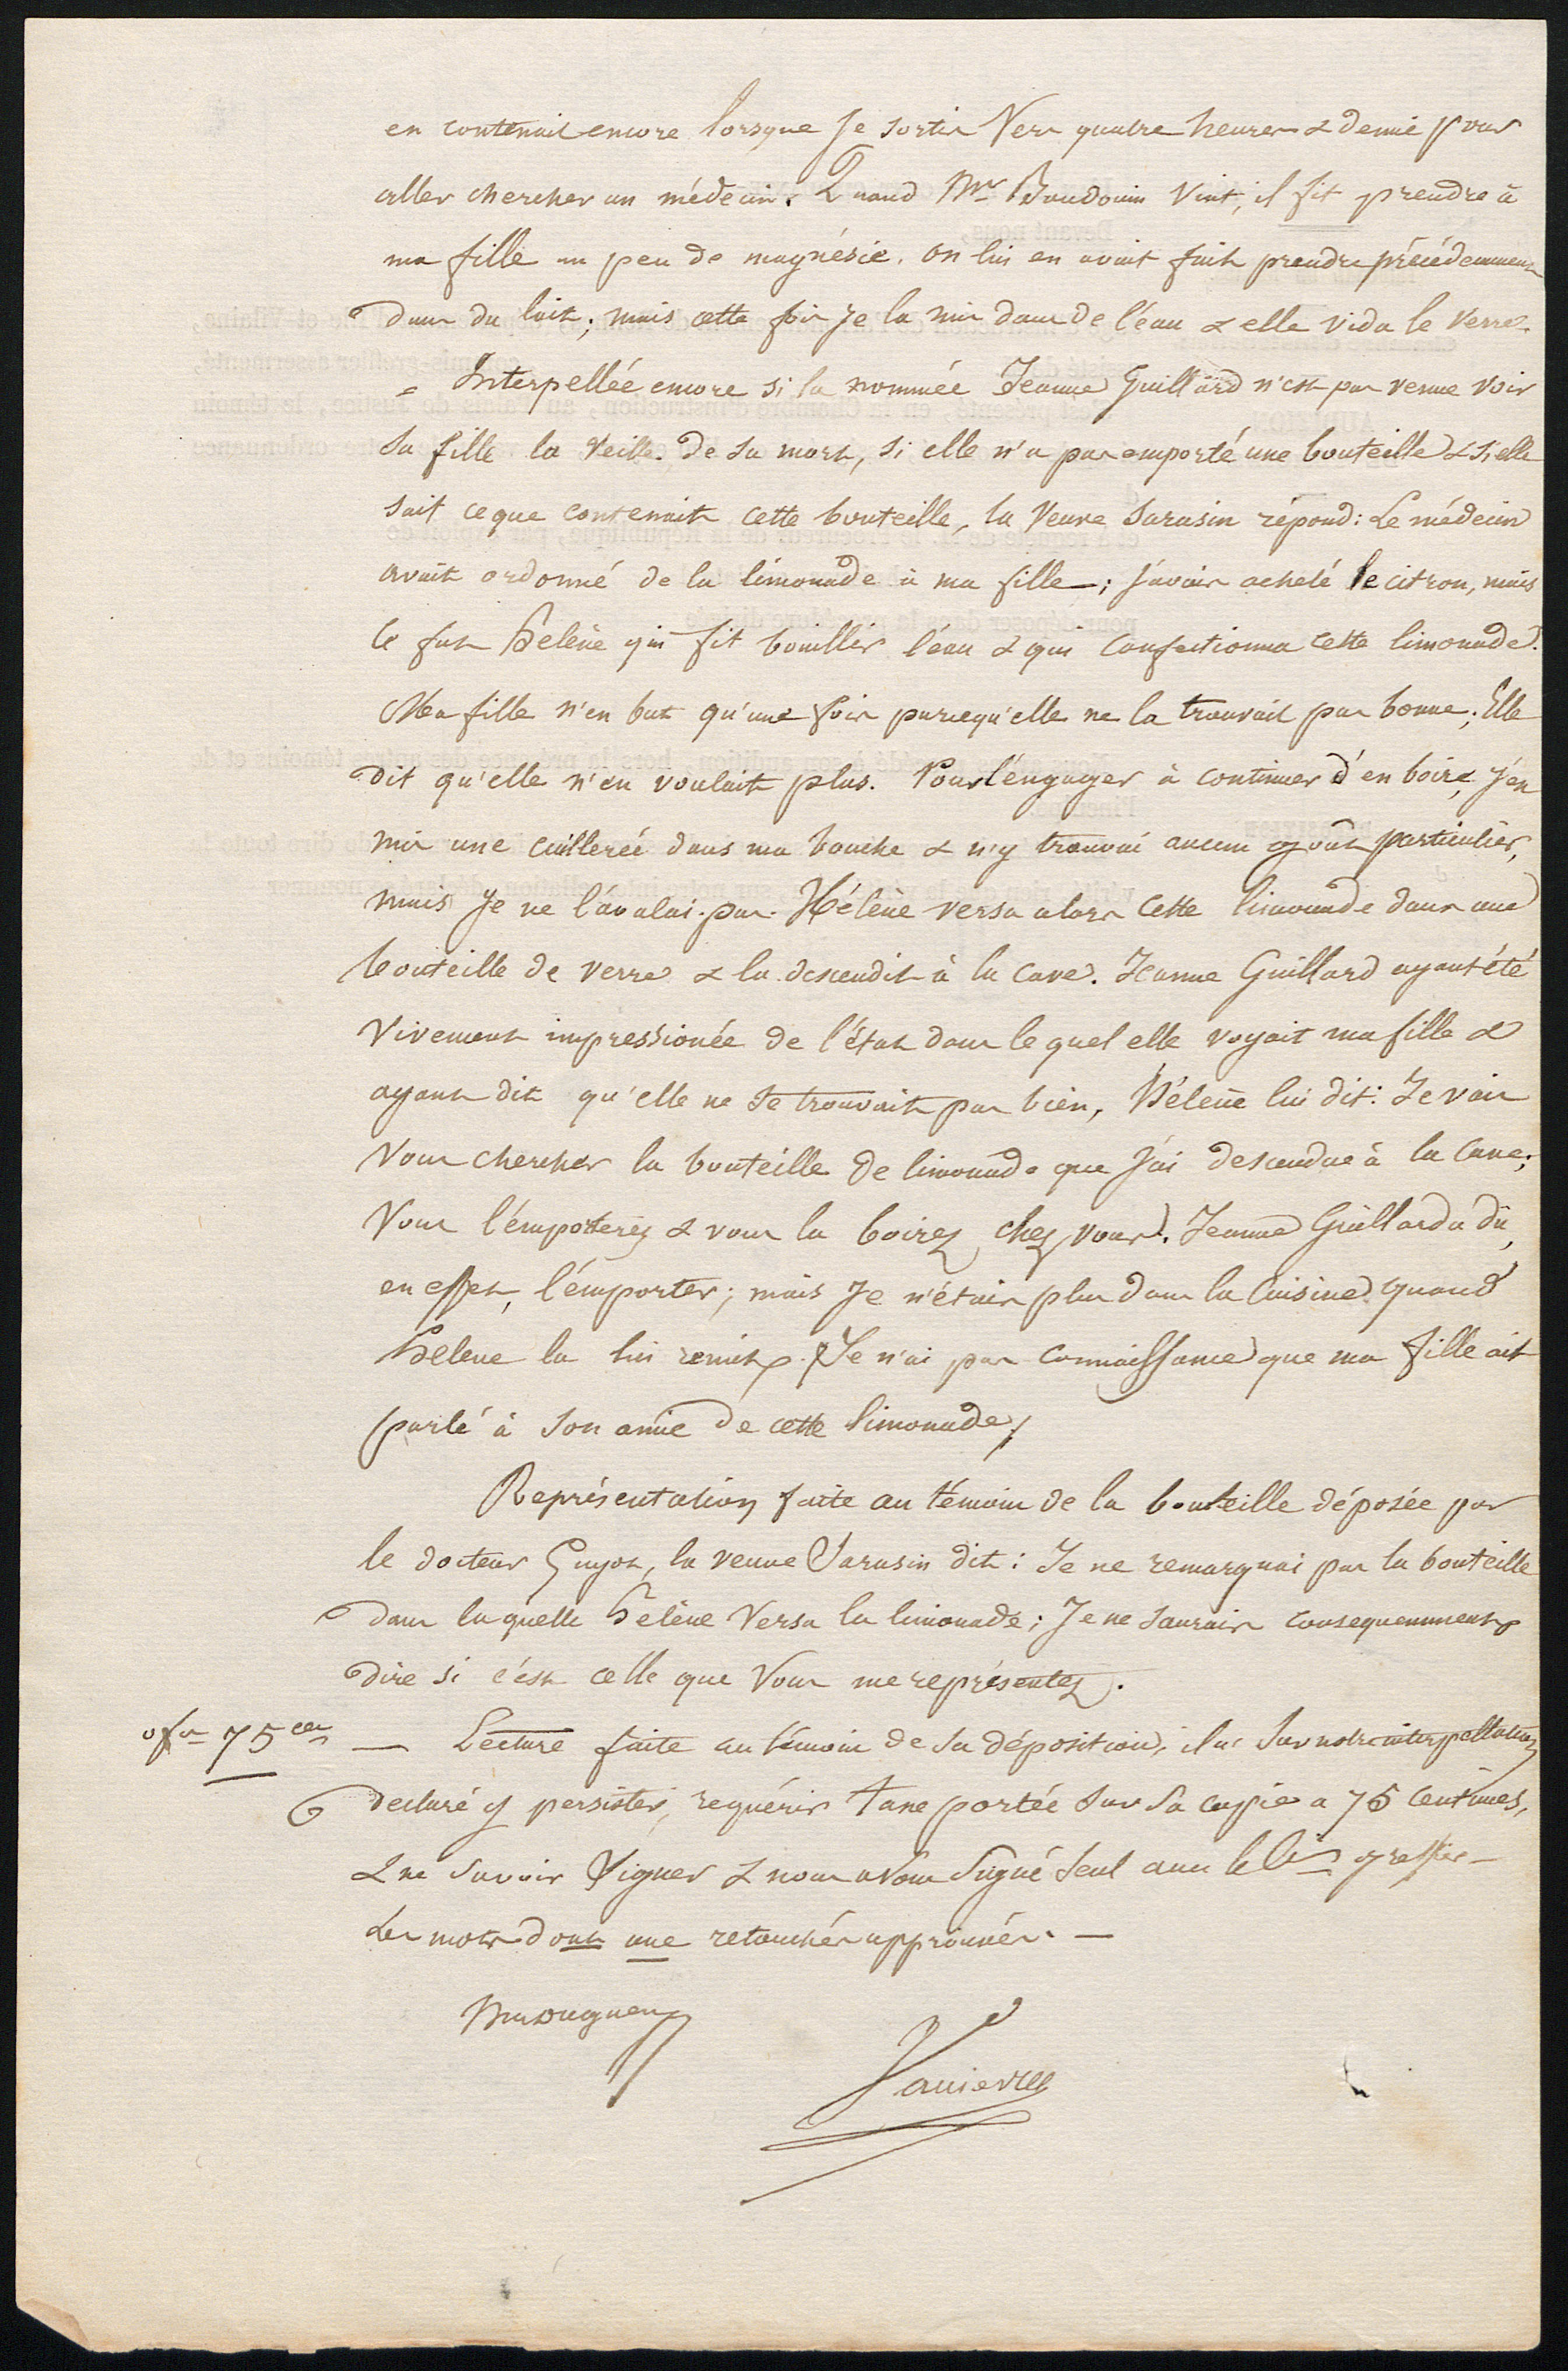 en contenait encore lorsque je sortis vers quatre heures & demie pour
aller chercher un médecin. Quand Mr Baudouin vint, il fit prendre à
ma fille un peu de magnésie. on lui en avait fait prendre précédemment
dans du lait; mais cette fois je la mis dans de l'eau & elle vida le verre.
Interpellée encore si la nommée Jeanne Guillard n'est pas venue voir
sa fille la veille de sa mort, si elle n'a pas emporté une bouteille & si elle
sait ce que contenait cette bouteille, la Veuve Sarasin répond: Le médecin
avait ordonné de la limonade à ma fille; j'avais acheté le citron, mais
ce fut Hélène qui fit bouillir l'eau & qui confectionna cette limonade.
Ma fille n'en but qu'une fois parcequ'elle ne la trouvait pas bonne; Elle
dit qu'elle n'en voulait plus. Pour l'engager à continuer d'en boire, j'en
mis une cuillerée dans ma bouche & n'y trouvai aucun goût particulier,
mais je ne l'avalai pas. Hélène versa alors cette limonade dans une
bouteille de verre & la descendit à la cave. Jeanne Guillard ayant été
vivement impressionée de l'état dans le quel elle voyait ma fille &
ayant dit qu'elle ne se trouvait pas bien, Hélène lui dit: Je vais
vous chercher la bouteille de limonade que j'ai descendue à la cave;
Vous l'emporterez & vous la boirez chez vous. Jeanne Guillard a dû,
en effet, l'emporter; mais je n'étais plus dans la cuisine quand
Hélène la lui remit. Je n'ai pas connaissance que ma fille ait
parlé à son amie de cette limonade.
Représentation faite au témoin de la bouteille déposée par
le docteur Guyot, la veuve Sarasin dit: Je ne remarquai pas la bouteille
dans laquelle Hélène versa la limonade; Je ne saurais consequemment
dire si c'est celle que vous me représentez.
0fr 75ces — Lecture faite au témoin de sa déposition, il a sur notre interpellation
declaré y persister, requérir taxe portée sur sa copie a 75 centimes,
& ne savoir signer & nous avons signé seul avec le Cis greffier —
Les mots dont une retouchés approuvés. —
Janierre